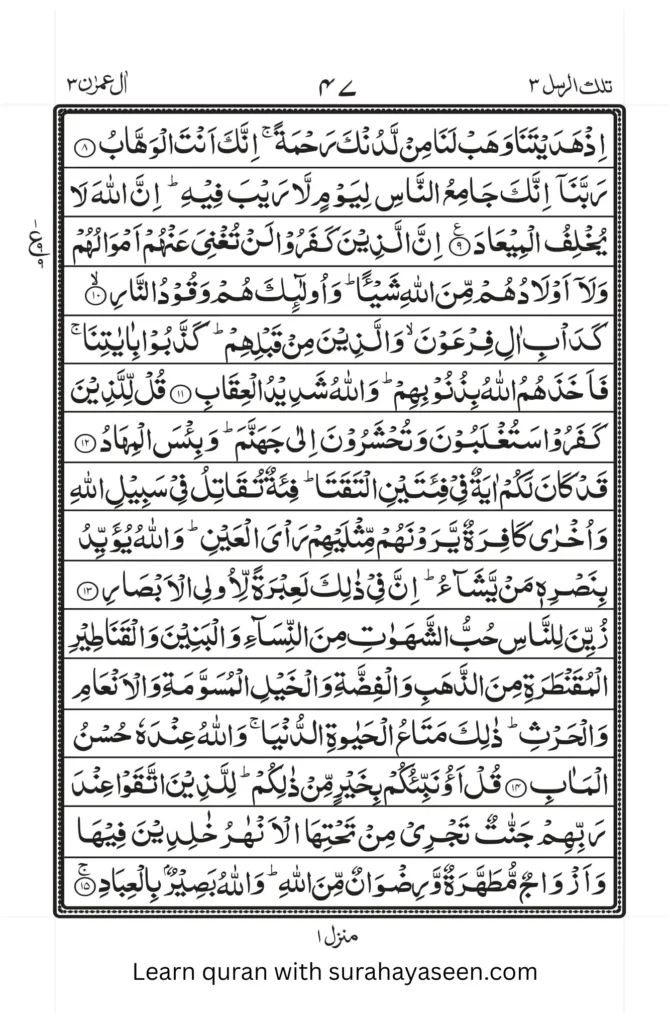 تلك الرسل ٣ ٤٧ اٰل عمرٰن ٣
اِذْ هَدَيْتَنَا وَهَبْ لَنَا مِنْ لَّدُنْكَ رَحْمَةً ۚ اِنَّكَ اَنْتَ الْوَهَّابُ ۝۸
رَبَّنَاۤ اِنَّكَ جَامِعُ النَّاسِ لِيَوْمٍ لَّا رَيْبَ فِيْهِ ؕ اِنَّ اللّٰهَ لَا
يُخْلِفُ الْمِيْعَادَ ۝۹ ع اِنَّ الَّذِيْنَ كَفَرُوْا لَنْ تُغْنِيَ عَنْهُمْ اَمْوَالُهُمْ
وَلَاۤ اَوْلَادُهُمْ مِّنَ اللّٰهِ شَيْـًٔا ؕ وَاُولٰٓئِكَ هُمْ وَقُوْدُ النَّارِ ۝۱۰ ۙ
كَدَاْبِ اٰلِ فِرْعَوْنَ ۙ وَالَّذِيْنَ مِنْ قَبْلِهِمْ ؕ كَذَّبُوْا بِاٰيٰتِنَا ۚ
فَاَخَذَهُمُ اللّٰهُ بِذُنُوْبِهِمْ ؕ وَاللّٰهُ شَدِيْدُ الْعِقَابِ ۝۱۱ قُلْ لِّلَّذِيْنَ
كَفَرُوْا سَتُغْلَبُوْنَ وَتُحْشَرُوْنَ اِلٰى جَهَنَّمَ ؕ وَبِئْسَ الْمِهَادُ ۝۱۲
قَدْ كَانَ لَكُمْ اٰيَةٌ فِيْ فِئَتَيْنِ الْتَقَتَا ؕ فِئَةٌ تُقَاتِلُ فِيْ سَبِيْلِ اللّٰهِ
وَاُخْرٰى كَافِرَةٌ يَّرَوْنَهُمْ مِّثْلَيْهِمْ رَاْيَ الْعَيْنِ ؕ وَاللّٰهُ يُؤَيِّدُ
بِنَصْرِهٖ مَنْ يَّشَآءُ ؕ اِنَّ فِيْ ذٰلِكَ لَعِبْرَةً لِّاُولِي الْاَبْصَارِ ۝۱۳
زُيِّنَ لِلنَّاسِ حُبُّ الشَّهَوٰتِ مِنَ النِّسَآءِ وَالْبَنِيْنَ وَالْقَنَاطِيْرِ
الْمُقَنْطَرَةِ مِنَ الذَّهَبِ وَالْفِضَّةِ وَالْخَيْلِ الْمُسَوَّمَةِ وَالْاَنْعَامِ
وَالْحَرْثِ ؕ ذٰلِكَ مَتَاعُ الْحَيٰوةِ الدُّنْيَا ۚ وَاللّٰهُ عِنْدَهٗ حُسْنُ
الْمَاٰبِ ۝۱۴ قُلْ اَؤُنَبِّئُكُمْ بِخَيْرٍ مِّنْ ذٰلِكُمْ ؕ لِلَّذِيْنَ اتَّقَوْا عِنْدَ
رَبِّهِمْ جَنّٰتٌ تَجْرِيْ مِنْ تَحْتِهَا الْاَنْهٰرُ خٰلِدِيْنَ فِيْهَا
وَاَزْوَاجٌ مُّطَهَّرَةٌ وَّرِضْوَانٌ مِّنَ اللّٰهِ ؕ وَاللّٰهُ بَصِيْرٌۢ بِالْعِبَادِ ۝۱۵ ۚ
منزل ۱
Learn quran with surahayaseen.com